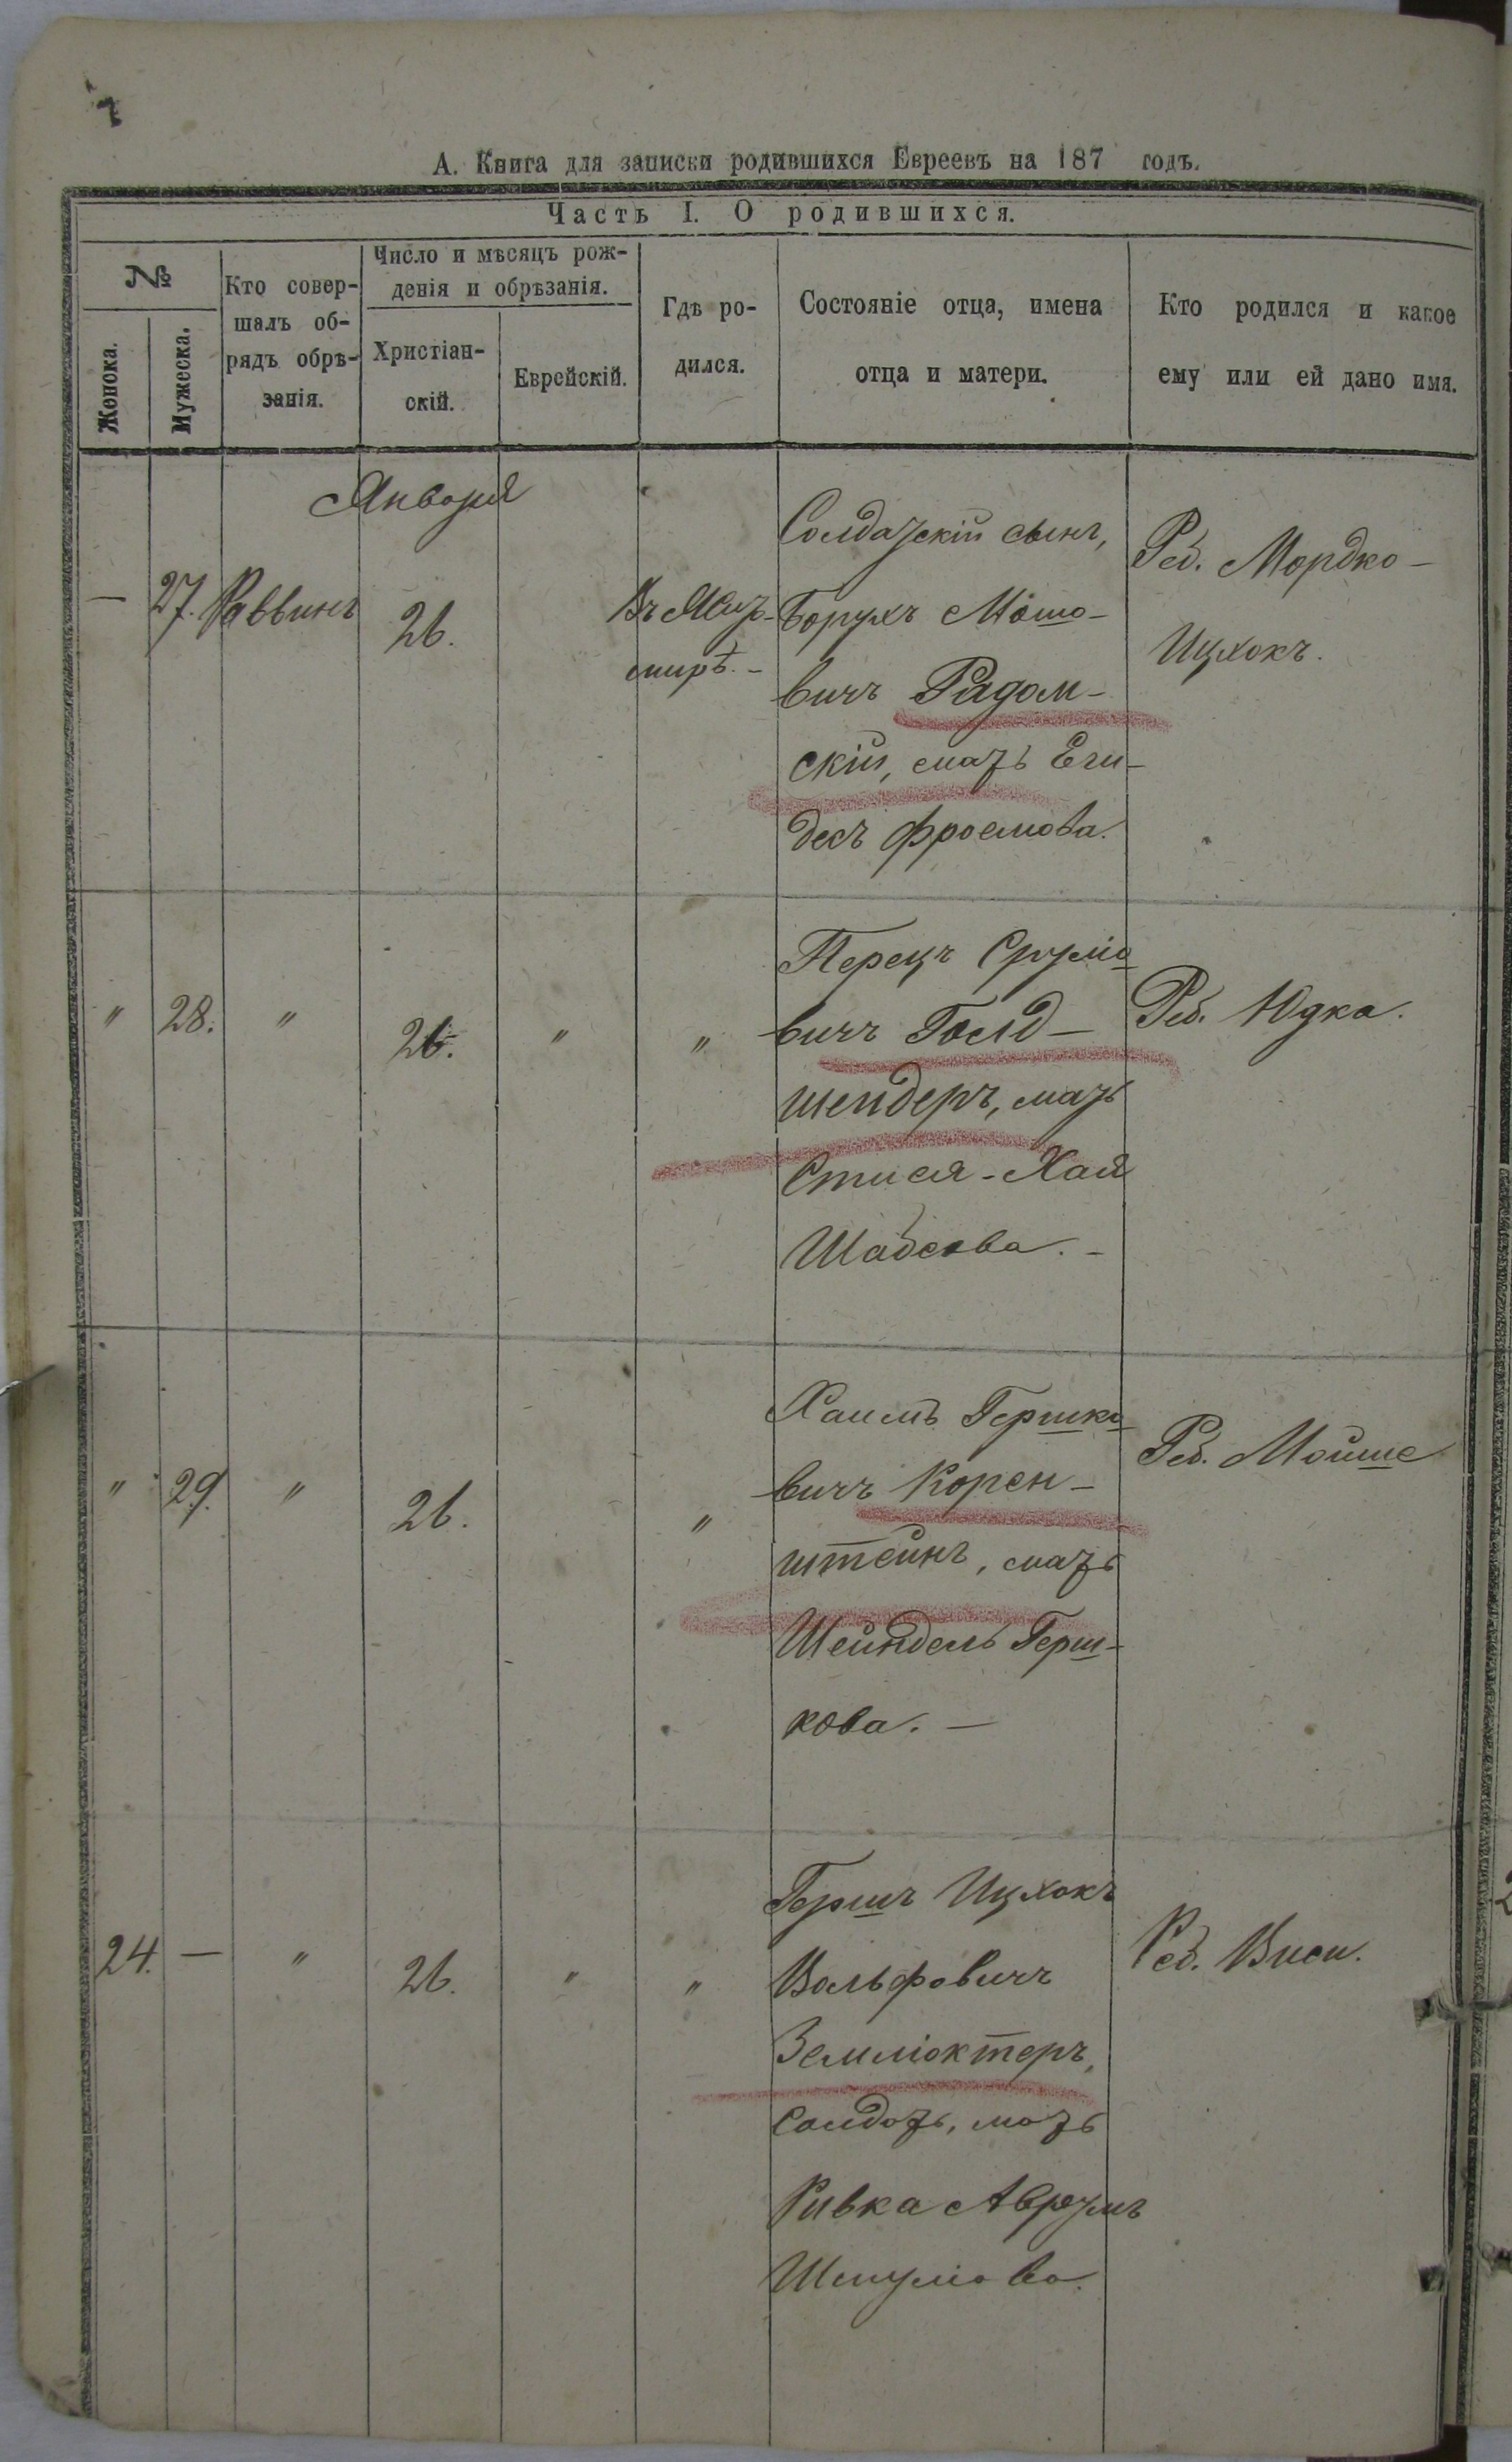 А. Книга для записки родившихся Евреевъ на 187 годъ.
Часть I. О родившихся.
№
Женска.
Мужеска.
Кто совер-
шалъ об-
рядъ обрѣ-
занія.
Число и мѣсяцъ рож-
денія и обрѣзанія.
Христіан-
скій.
Еврейскій.
Гдѣ ро-
дился.
Состояніе отца, имена
отца и матери.
Кто родился и какое
ему или ей дано имя.
Января
— 27. Раввинъ 26.
Въ Жит-
мирѣ. -
Солдатскій сынъ,
Борухъ Мошо-
вичъ Радом-
скій, мать Еги-
десъ Фроемова.
Реб. Мордко-
Ицхокъ.
" 28. " 26. " "
Перецъ Срулю
вичъ Голд-
шендеръ, мать
Стися-Хая
Шабсова. -
Реб. Юдка.
" 29. " 26. "
Хаимъ Гершко
вичъ Корен-
штейнъ, мать
Шейндель Герш-
кова. —
Реб. Мойше
24. — " 26. " "
Гершъ Ицхокъ
Вольфовичъ
солдатъ, мать
Ривка Аврумъ
Шмулiова.
Реб. Виси.